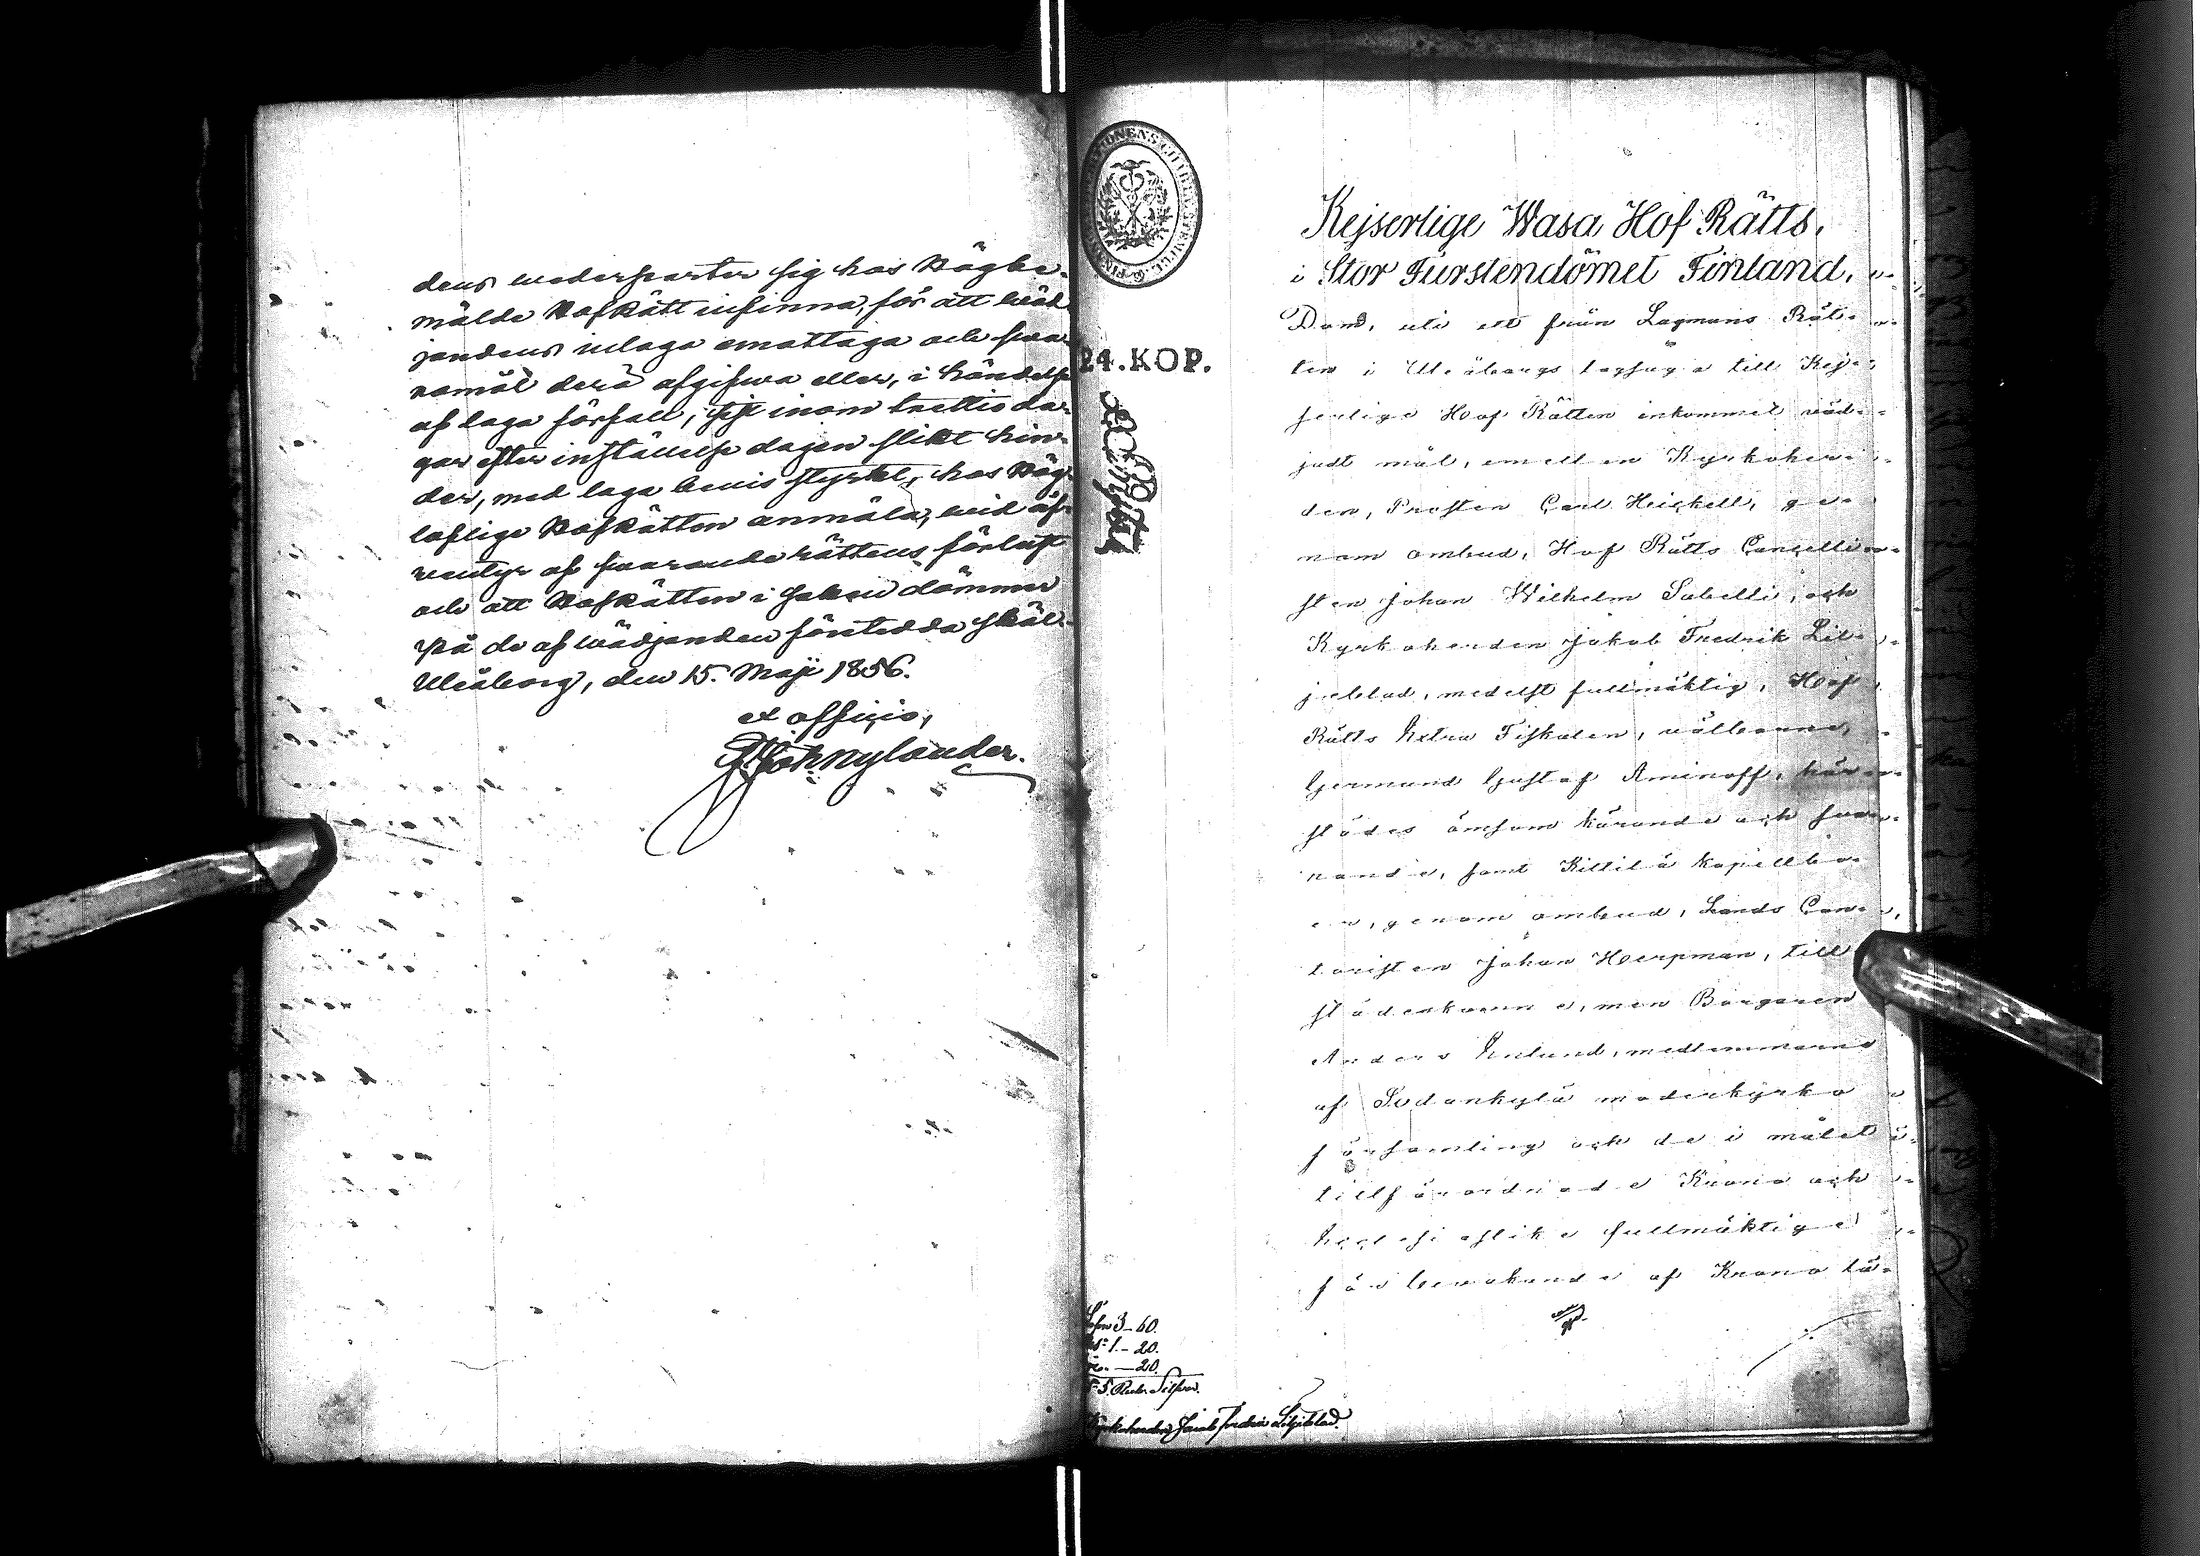 dens wederparter sig hos Högbe-
mälde HofRätt infinna, för att wäd-
jandens inlaga emottaga och swa-
romål derå afgifwa eller, i händelse
af laga förfall, sist inom trettio da-
gar efter inställelse dagen slikt hin-
der, med laga bewis styrkt, hos Hög-
loflige HofRätten anmäla, wid äf-
wentyr af swarande rättens förlust
och att HofRätten i saken dömmer
på de af wädjanden företedda skäl.
Uleåborg, den 15. Maji 1856.
ex officio,
Joh Nylander.
24. KOP.
Kejserlige Wasa Hof Rätts,
i Stor Furstendömet Finland,
Dom, uti ett från Lagmans Rät-
ten i Uleåborgs lagsaga till Kej-
serlige Hof Rätten inkommet väd-
jadt mål, emellan Kyrkoher-
den, Prosten Carl Heickell, ge-
nom ombud, Hof Rätts Cancelli-
sten Johan Wilhelm Sabelli, och
Kyrkoherden Jakob Fredrik Lil-
jeblad, medelst fullmäktig, Hof
Rätts Extra Fiskalen, välborne
Germund Gustaf Aminoff, här-
städes ömsom kärande och swa-
rande, samt Kittilä kapellbo-
er, genom ombud, Lands Can-
toristen Johan Herpman, till
städeskomne, men Borgaren
Anders Enlund, medlemmarne
af Sodankylä moderkyrko
församling och de i målet
tillförordnade Krono och
Ecclesiastike fullmäktige
för bewakande af Krono tä-
3 - 60.
1. - 20.
— 20.
5. Rub. Silfwer.
Kyrkoherden Jacob Fredric Liljeblad.